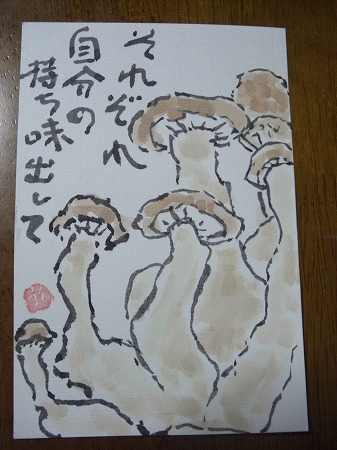 それぞれ
自分の
持ち味出して